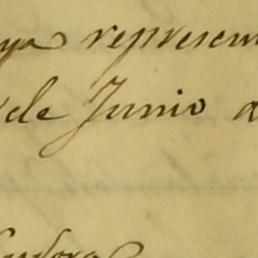 ya represen
de Junio d